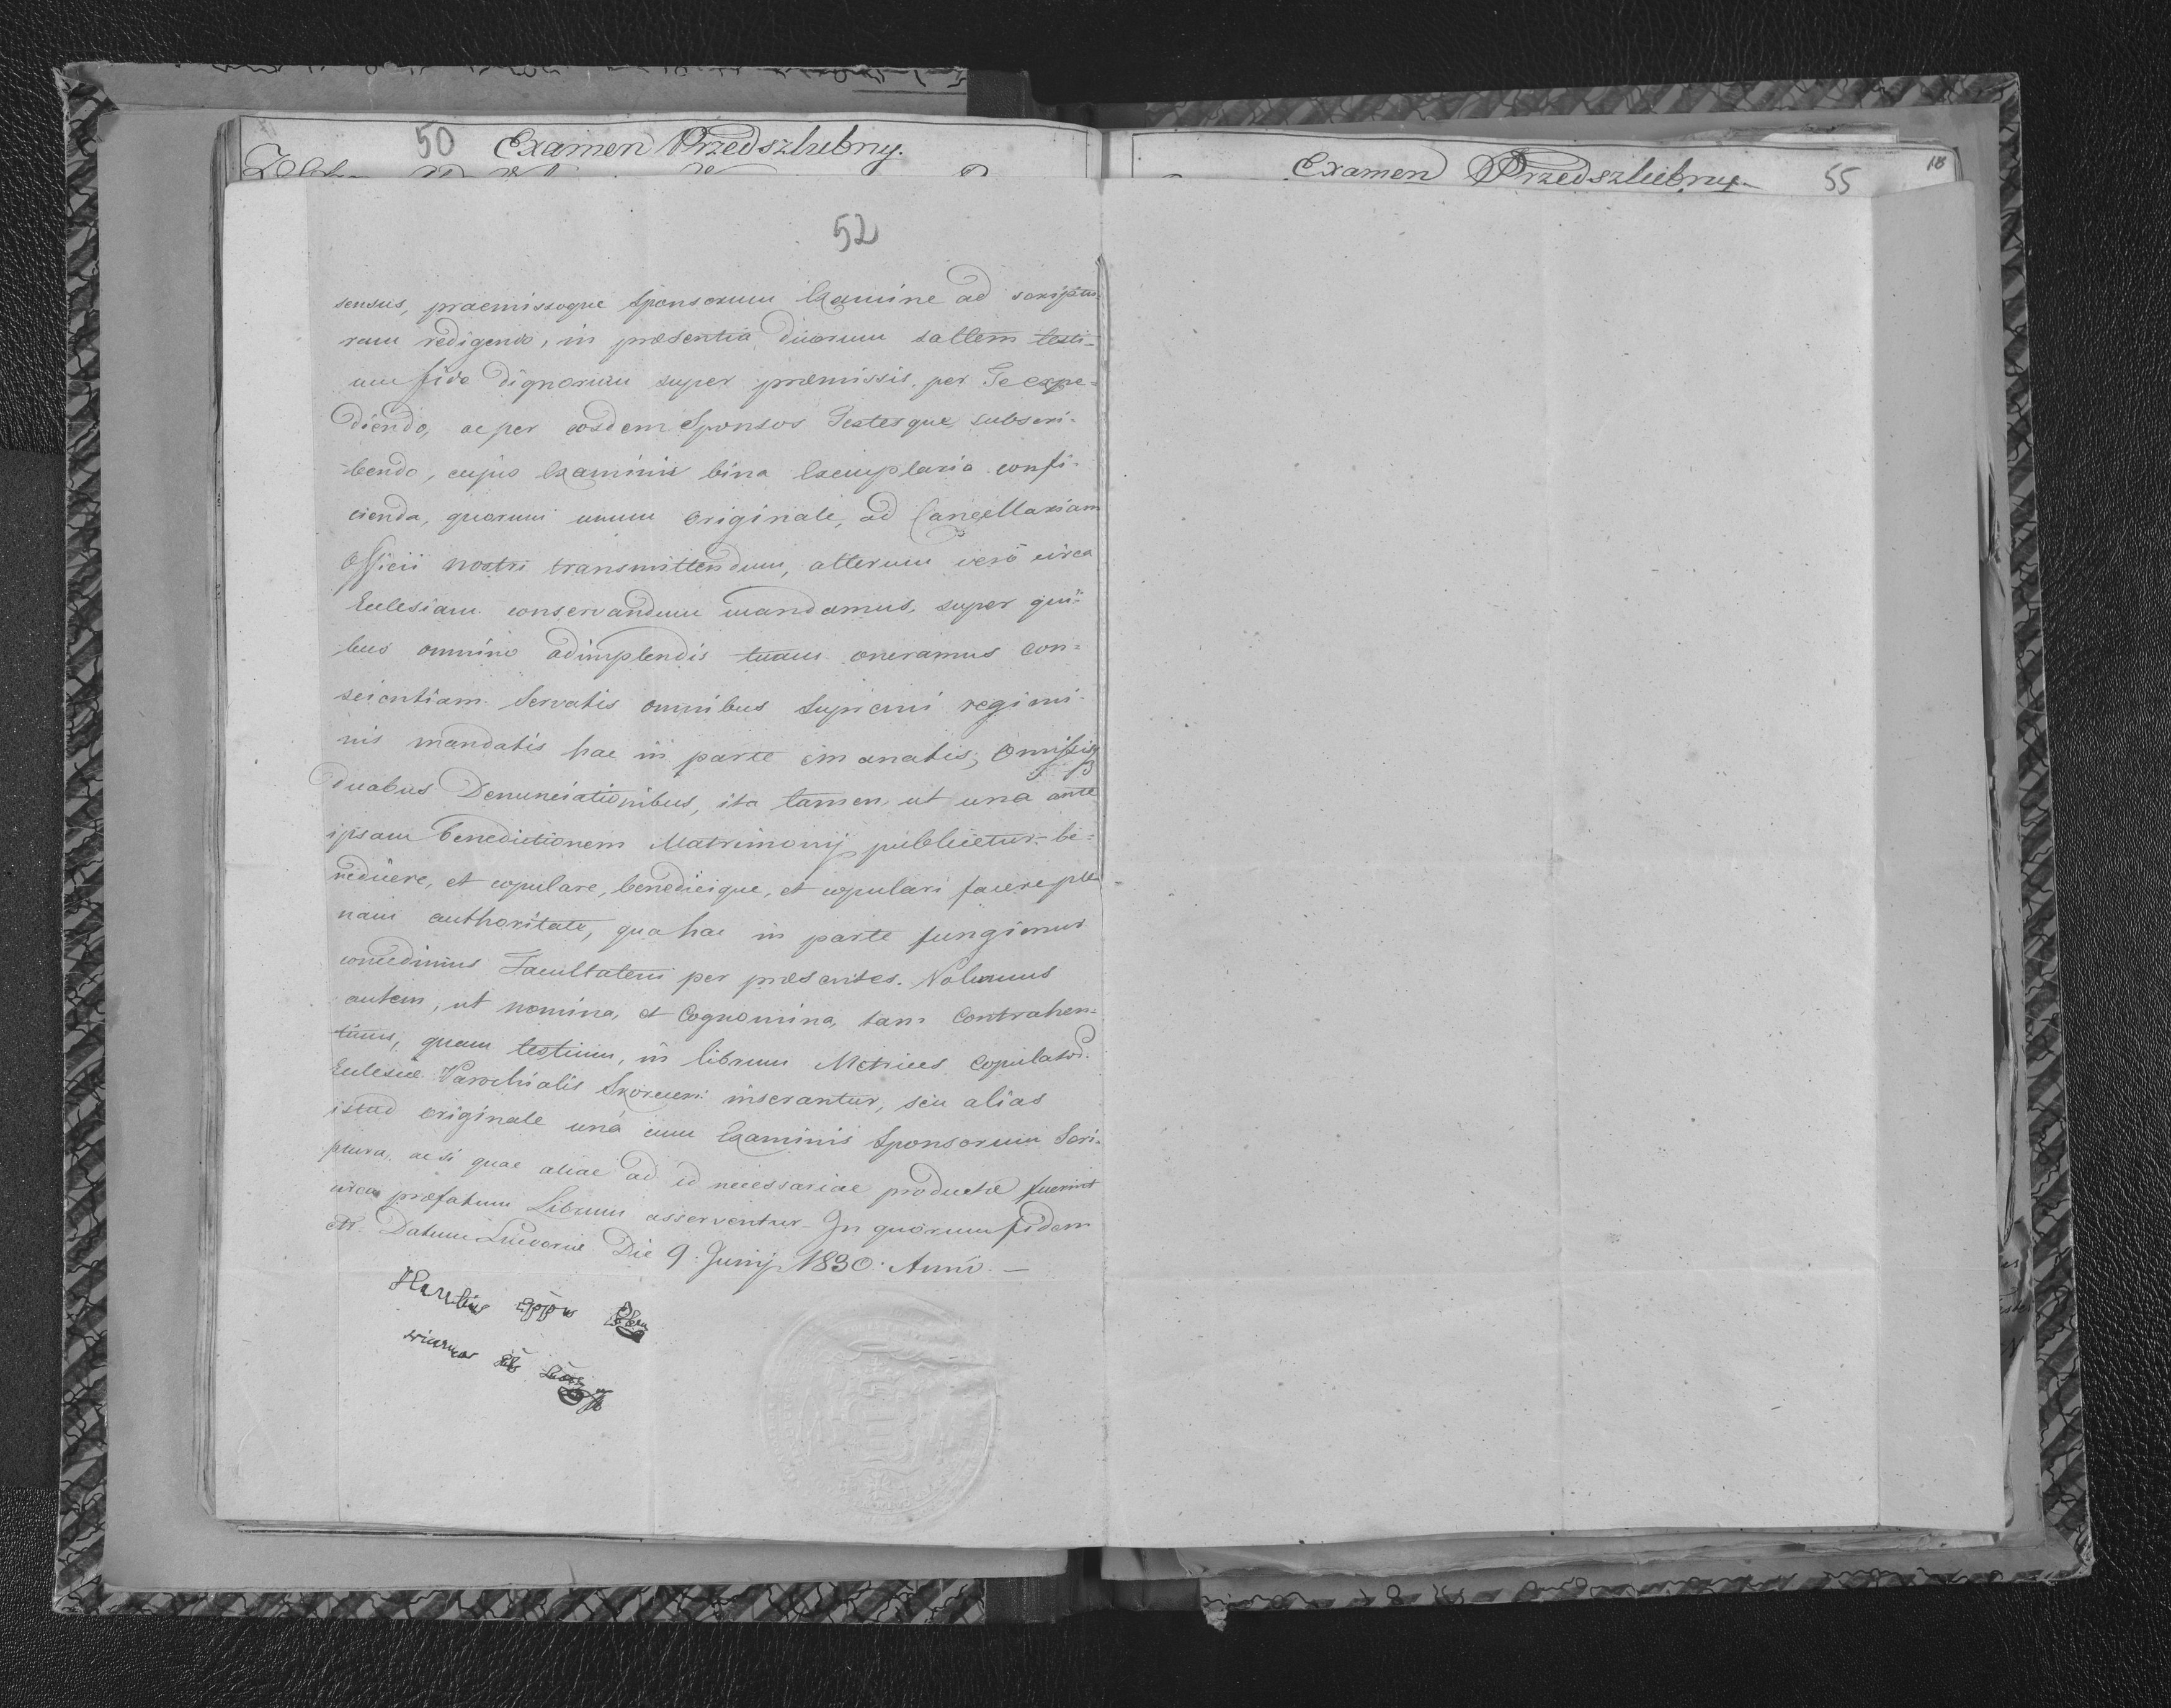 50 Examen Przedszlubny.
52
sensus, praemissoque Sponsorum Examine ad scriptu-
ram redigendo, in praesentia duorum saltem testi-
um fide dignorum super praemissis, per Te expe-
diendo, ac per eosdem Sponsos Testesque subscri-
bendo, cujus Examinis bina Exemplaria confi-
cienda, quorum unum originale, ad Cancellariam
Officii nostri transmittendum, alterum verò circa
Ecclesiam conservandum mandamus, super qui-
bus omnino adimplendis tuam oneramus con=
scientiam. Servatis omnibus Supremi regimi-
nis mandatis hac in parte emanatis; Omissisq
duabus Denunciationibus, ita tamen, ut una ante
ipsam benedictionem Matrimonij publicetur- be=
nedicere, et copulare, benedicique, et copulari facere ple
nam authoritate, qua hac in parte fungimur
concedimus Facultatem per praesentes. Volumus
autem, ut nomina, et Cognomina, tam Contrahen=
tium, quam testium, in librum Metrices Copulator.
Ecclesiae Parochialis inserantur, seu alias
istud originale unà cum Examinis Sponsorum Scri-
ptura, ac si quae aliae ad id necessariae productae fuerint
circa praefatum Librum asserventur- In quorum fidem
etc. Datum Die 9. Junij 1830. Anno. —
Examen Przedszlubny. 55